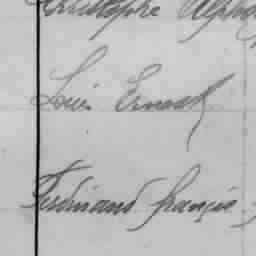 Christophe Alpho
Louis Ernest
Ferdinand françois